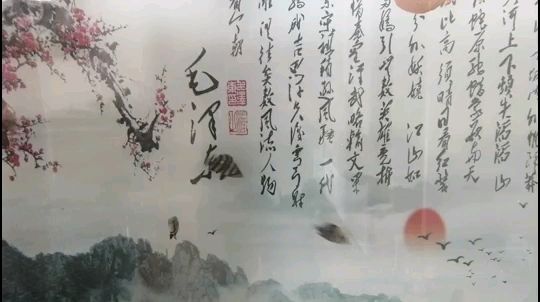 内外惟馀莽
河上下顿失滔滔山
蛇原驰蜡象欲与天
试比高须晴日看红装
分外妖娆 江山如
多娇引无数英雄竞折
惜秦皇汉武略输文采
宋祖稍逊风骚 一代
骄成吉思汗只识弯弓射
俱往矣数风流人物
看今朝
毛泽东